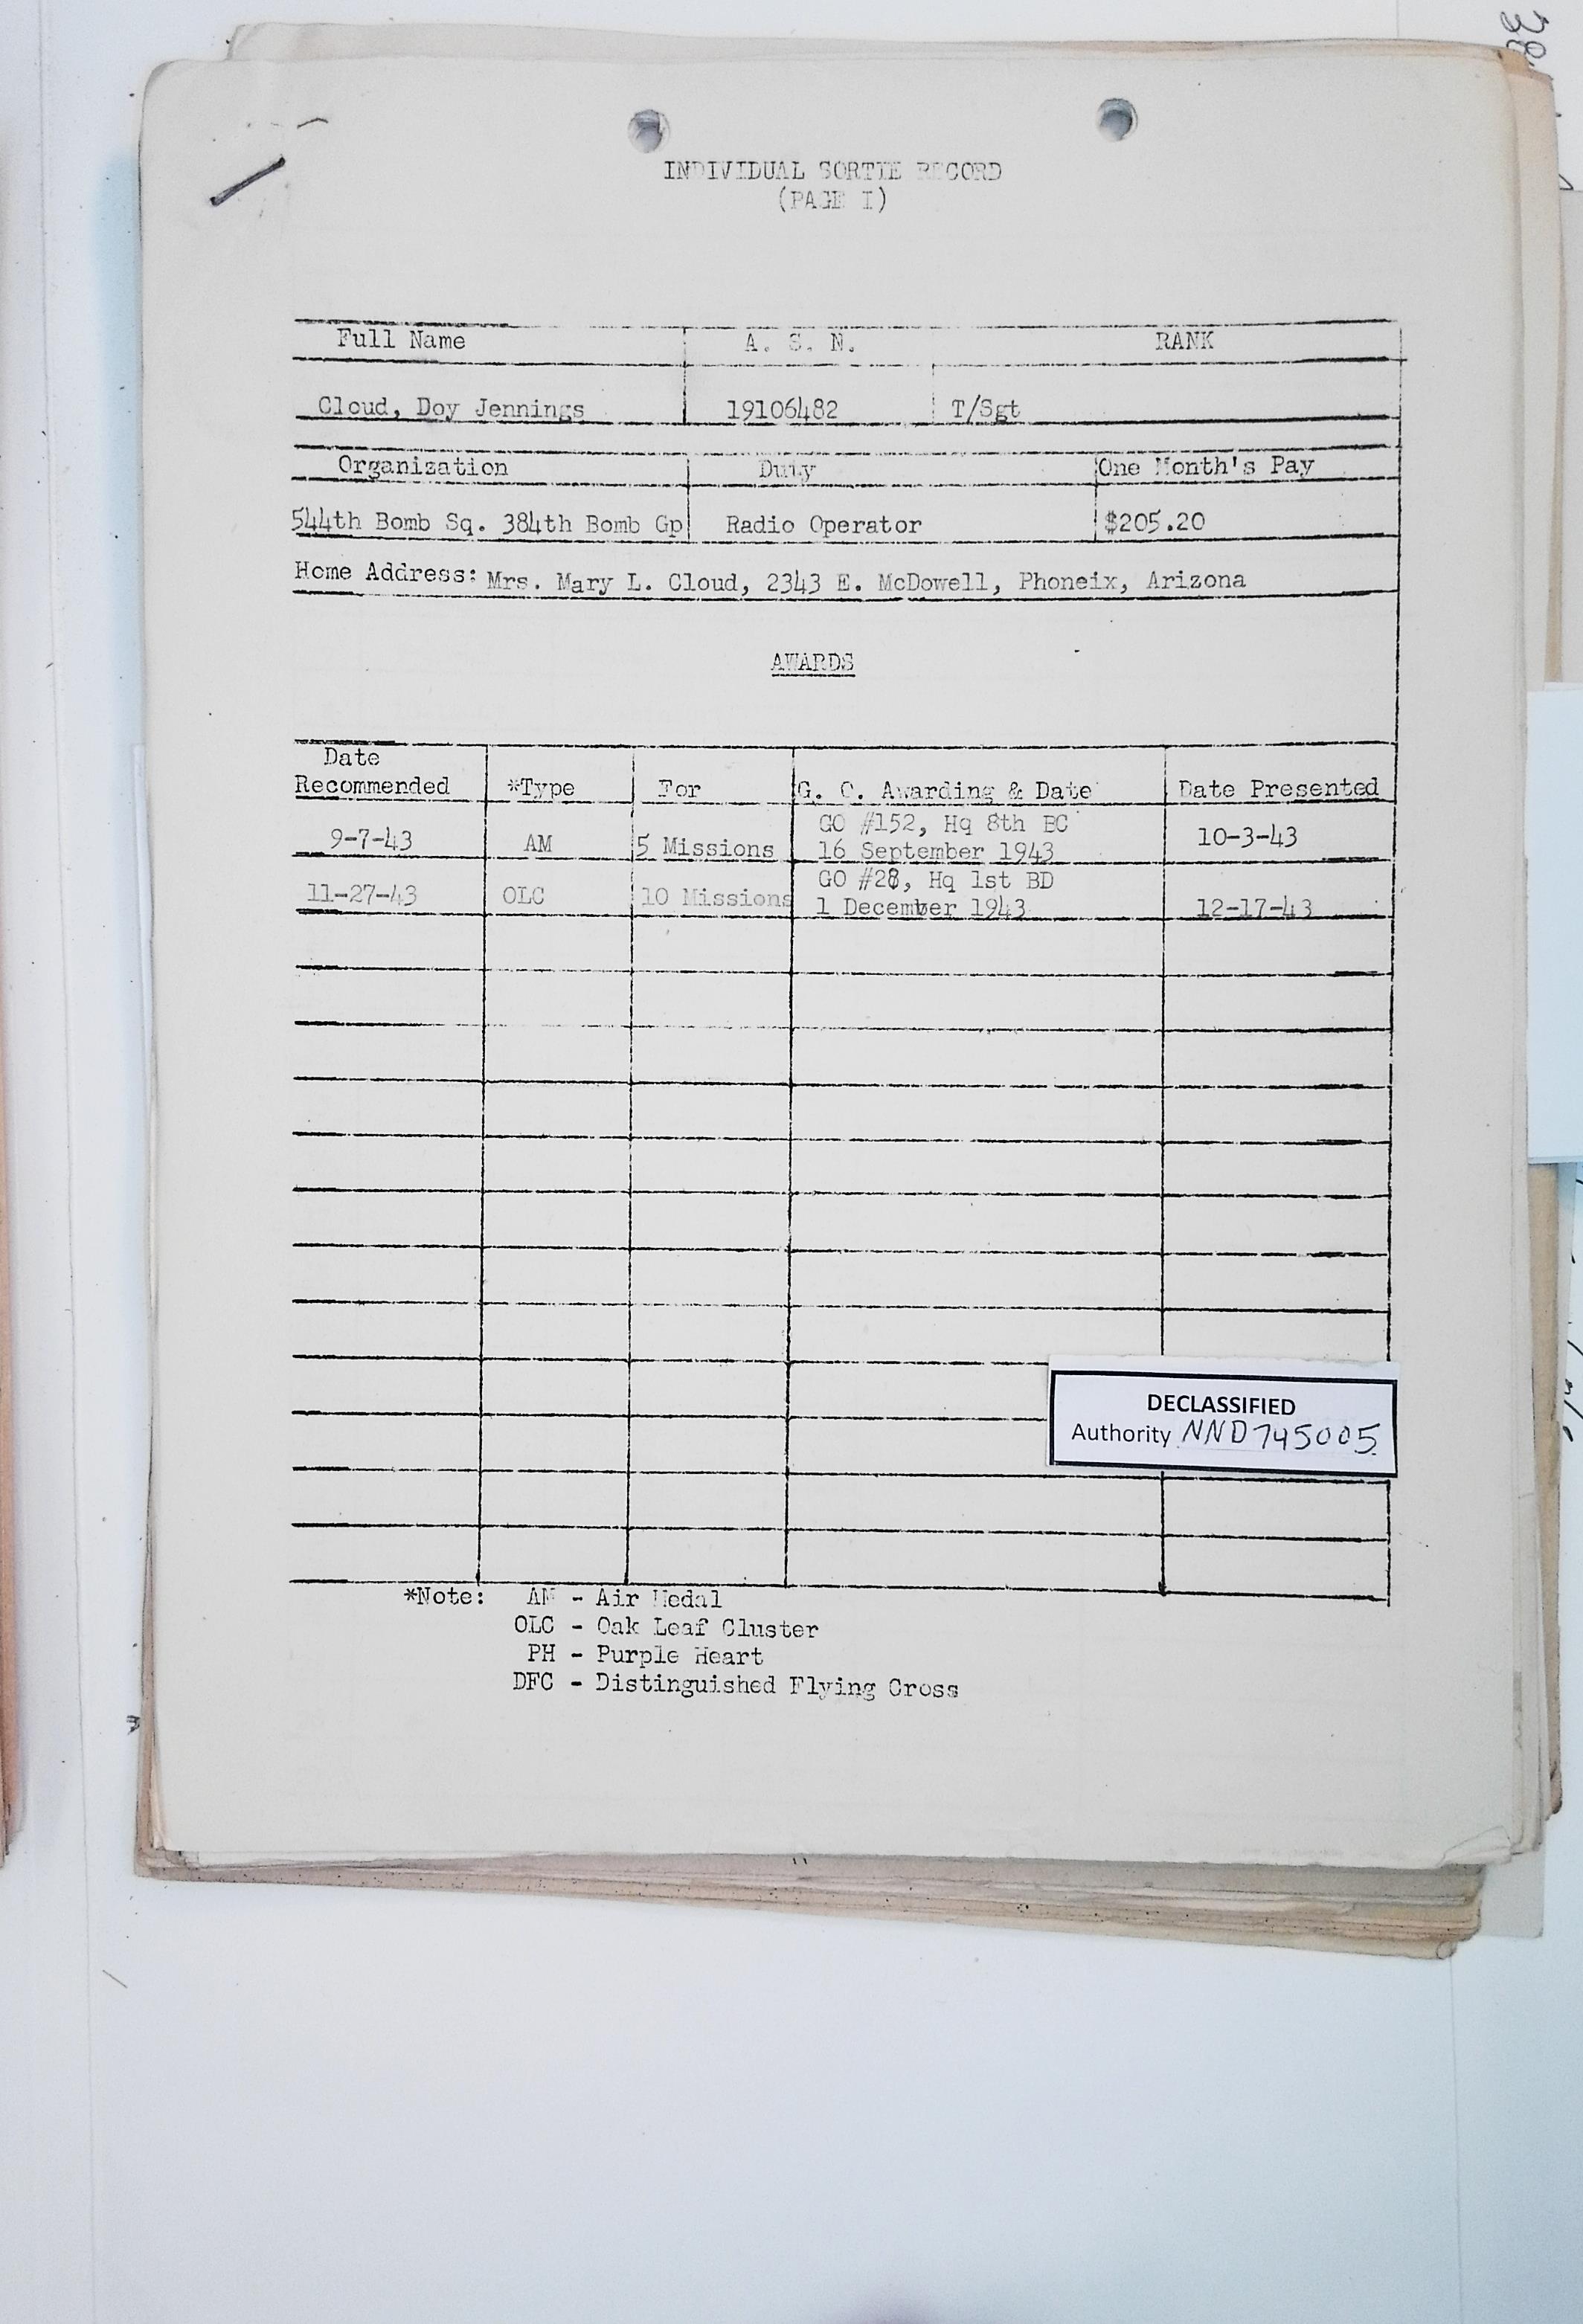 INDIVIDUAL SORTIE RECORD
(PAGE I)
Full Name A. S. N. RANK
Cloud, Doy Jennings 19106482 T/Sgt
Organization Duty One Month's Pay
544th Bomb Sq. 384th Bomb Gp Radio Operator $205.20
Home Address: Mrs. Mary L. Cloud, 2343 E. McDowell, Phoneix, Arizona
AWARDS
Date
Recommended *Type For G. O. Awarding & Date Date Presented
GO #152, Hq 8th BC
9-7-43 AM 5 Missions 16 September 1943 10-3-43
GO #28, Hq 1st BD
11-27-43 OLC 10 Missions 1 December 1943 12-17-43
DECLASSIFIED
Authority NND745005
*Note: AM - Air Medal
OLC - Oak Leaf Cluster
PH - Purple Heart
DFC - Distinguished Flying Cross